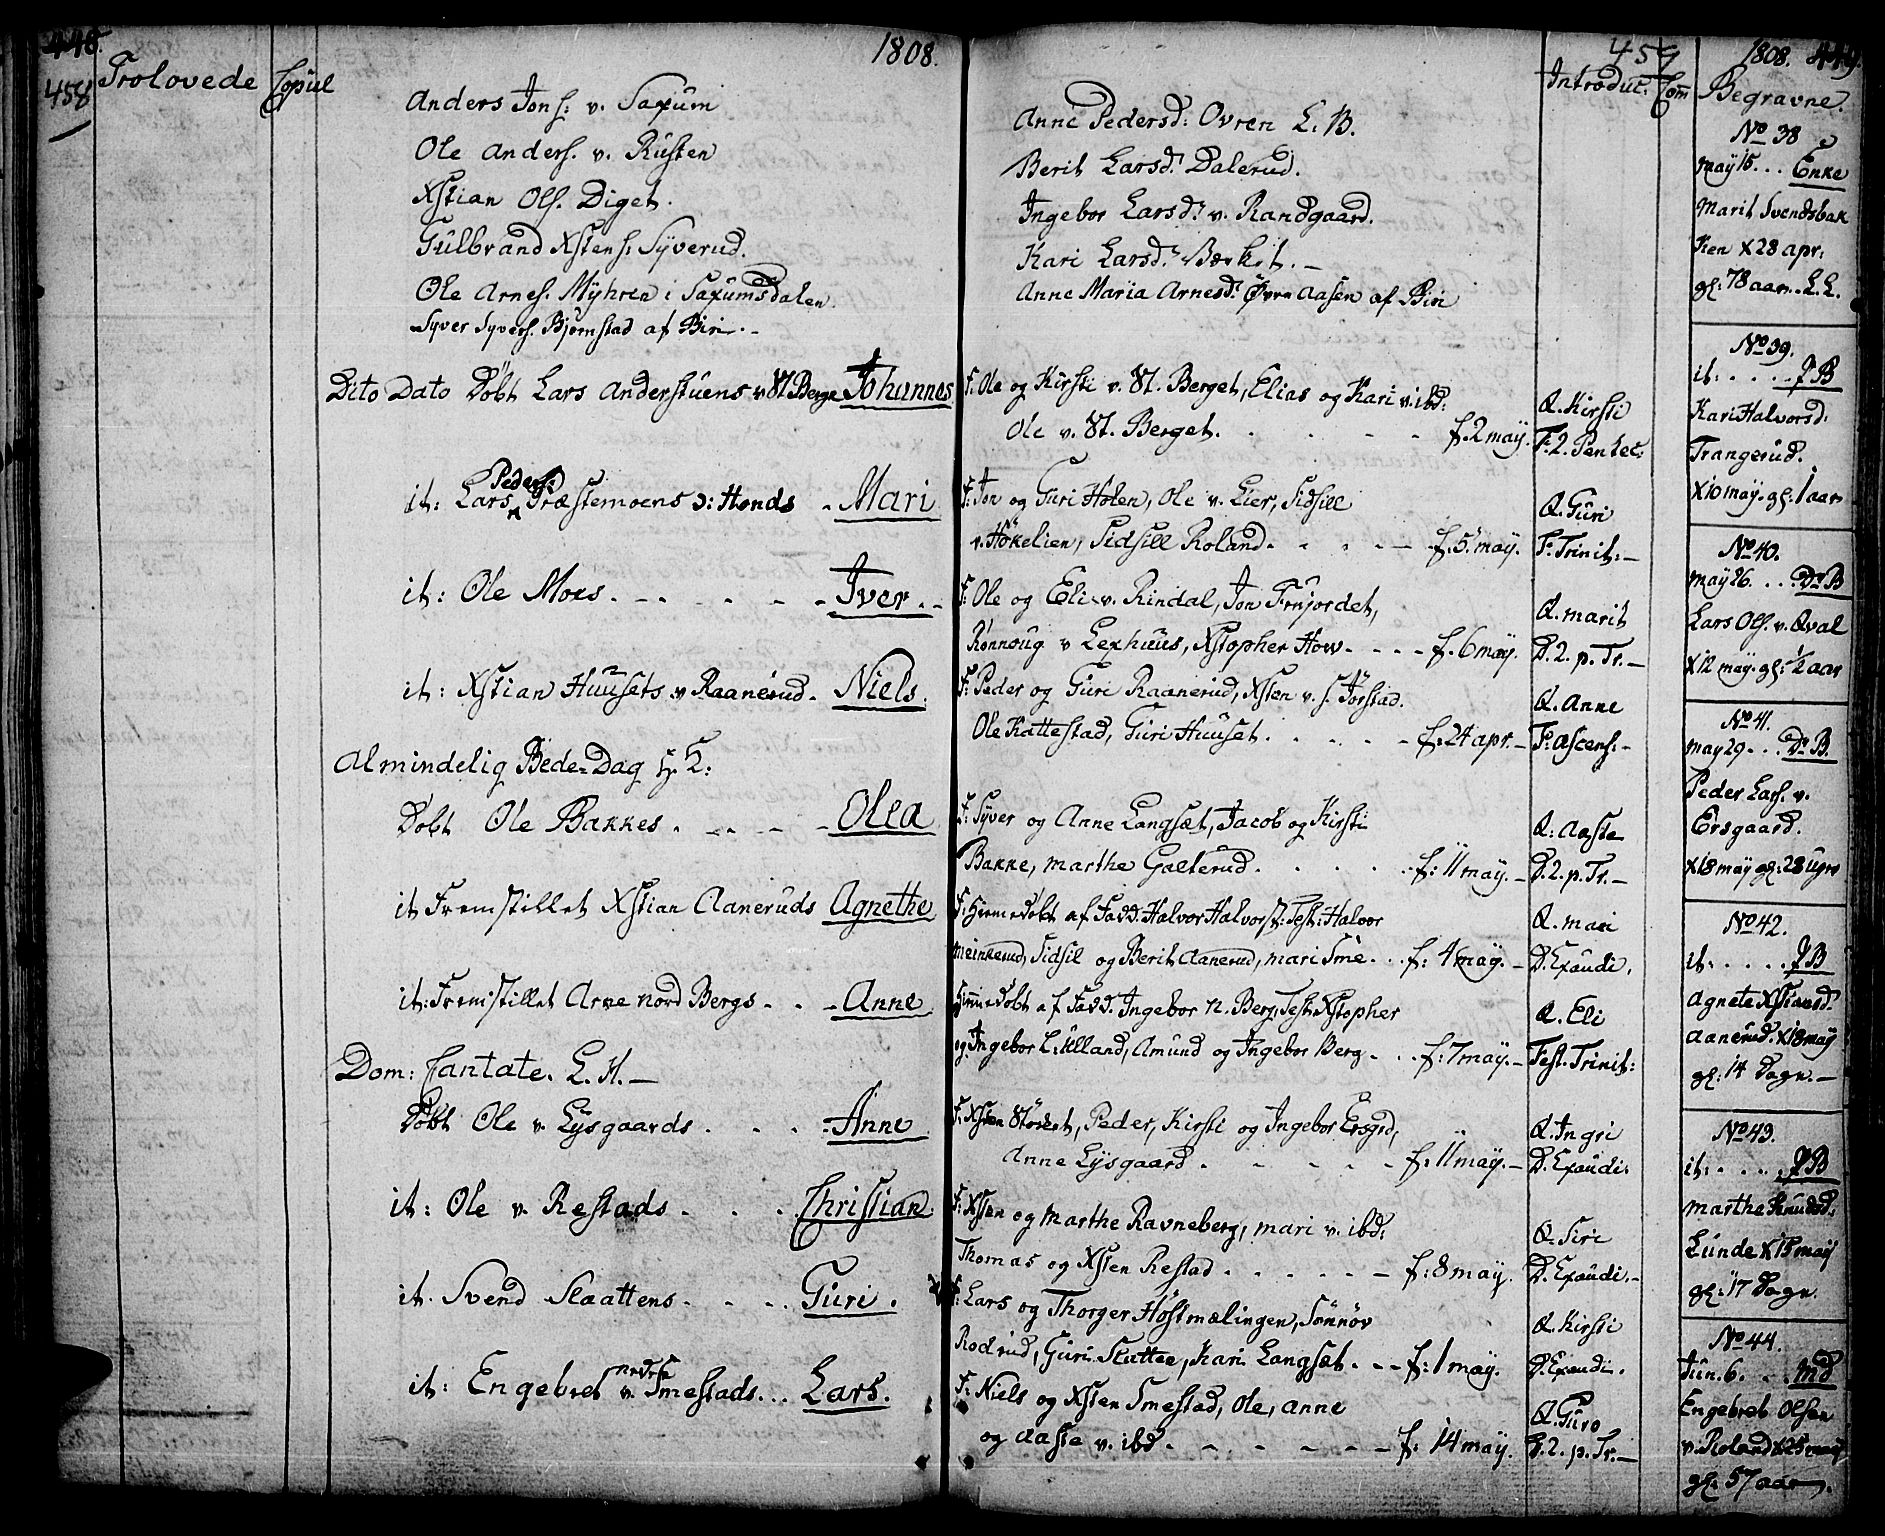 448.
458
Trolovede
Copul
1808.
Anders Jons: v. Saxum
Ole Anders. v. Rusten
Xstian Ols. Diget.
Gulbrand Xstens: Syverud.
Ole Arnes. Myhren i Saxumsdalen.
Syver Syvers. Bjørnstad af Biri.-
Dito Dato Döbt Lars Anderstuens v. St. Berge Johannes
it: Lars Peders: Præstemoens ɔ: Honds - Mari
it: Ole Moes. - Iver.
it: Xstian Huusets v Raanerud. Niels.
Almindelig Bede-Dag H. T:
Döbt Ole Bakkes. - Olea
it Fremstillet Xstian Aaneruds Agnethe
it: Fremstillet Arne nord Bergs. - Anne
Dom: Cantate. L. H. -
Döbt Ole v. Lysgaards . . . - Anne
it: Ole v. Restads . . . Christian.
it. Svend Slaattens. . . . Guri.
it: Engebret v. nedre Smestads... Lars.
459
1808. 449.
Introduc. Com
Begravne.
Anne Pedersd: Ovren L. B.
Berit Larsd: Dalerud.
Ingebor Larsd: v. Randgaard.
Kari Larsd: Bærket. -
Anne Maria Arnesd: Øvre Aasen af Biri
F: Ole og Kirsti v. St. Berget, Elias og Kari v. ibd:
Ole v. St. Berget. . . . - - f. 2 may.
Q. Kirsti
F: 2. Pentec:
F: Jon og Guri Holen, Ole v. Lier, Sidsill
v. Hökelien, Sidsill Roland. - - f. 5 may.
Q. Guri
F: Trinit: -
F: Ole og Eli v. Rindal, Jon Furjordet,
Rönnoug v Lexhuus, Xstopher How. - - - f. 6 may.
Q. Marit
D. 2. p. Tr. -
F: Peder og Guri Raanerud, Xsten v. s. Jörstad.
Ole Kattestad, Guri Huuset. . . - - f: 24 apr. -
Q. Anne
F: Ascens: -
F: Syver og Anne Langsæt, Jacob og Kirsti
Bakke, Marthe Galterud. . . . f: 11 may. -
Q: Aaste
D. 2. p. Tr. -
F: Hiemedöbt af Fadd: Halvor Halvors: Test: Halvor
Meinkerud, Sidsil og Berit Aanerud, Mari Sme. . . f: 4 may. -
Q. Mari
D. Exaudi.
Hiemedöbt af Fadd. Ingebor N. Berg, Test: Xstopher
og Ingebor L. Ulland, Amund og Ingebor Berg. . . f: 7 may. -
Q. Eli
Fest. Trinit:
F: Xsten Störket, Peder, Kirsti og Ingebor Ersgrd,
Anne Lysgaard . - - - - f: 11 may. -
Q. Ingri
D. Exaudi:
F: Xsten og Marthe Ravneberg, Mari v. ibd:
Thomas og Xsten Restad . . . . - f: 8 may.
Q. Siri
D. Exaudi. -
F: Lars og Thorger Höstmælingen, Sönnöv
Rodrud, Guri Slattee, Kari Langsæt. - - f: 1 may.
Q. Kirsti
D. Exaudi.
F: Niels og Xsten Smestad, Ole, Anne
og Aaste v. ibd. - - - - - f: 14 may.
Q. Guro
D. 2. p. Tr. -
No 38
May 15. . . Enke
Marit Svendsbak
ken X 28 apr.
gl: 78 aar. L. L.
No 39.
it: . . . . PB
Kari Halvorsd:
Trangerud.
X 10 may. gl: 1 aar
No 40.
May 26. . . Dr B
Lars Ols. v. Qval
X 12 may. gl: ½ aar
No 41.
May 29. . . Dr B.
Peder Lars. v.
Ersgaard.
X 18 may gl: 28 ugr
No 42.
it: . . . . PB
Agnete Xstiansd.
Aanerud. X 18 may
gl: 14 Dage. -
No 43.
it: . . . . PB
Marthe Knudsd:
Lunde X 15 may
gl: 17 Dage.
No 44.
Jun. 6. . . md
Engebret Olsen
v. Roland X 25 may
gl: 57 aar.